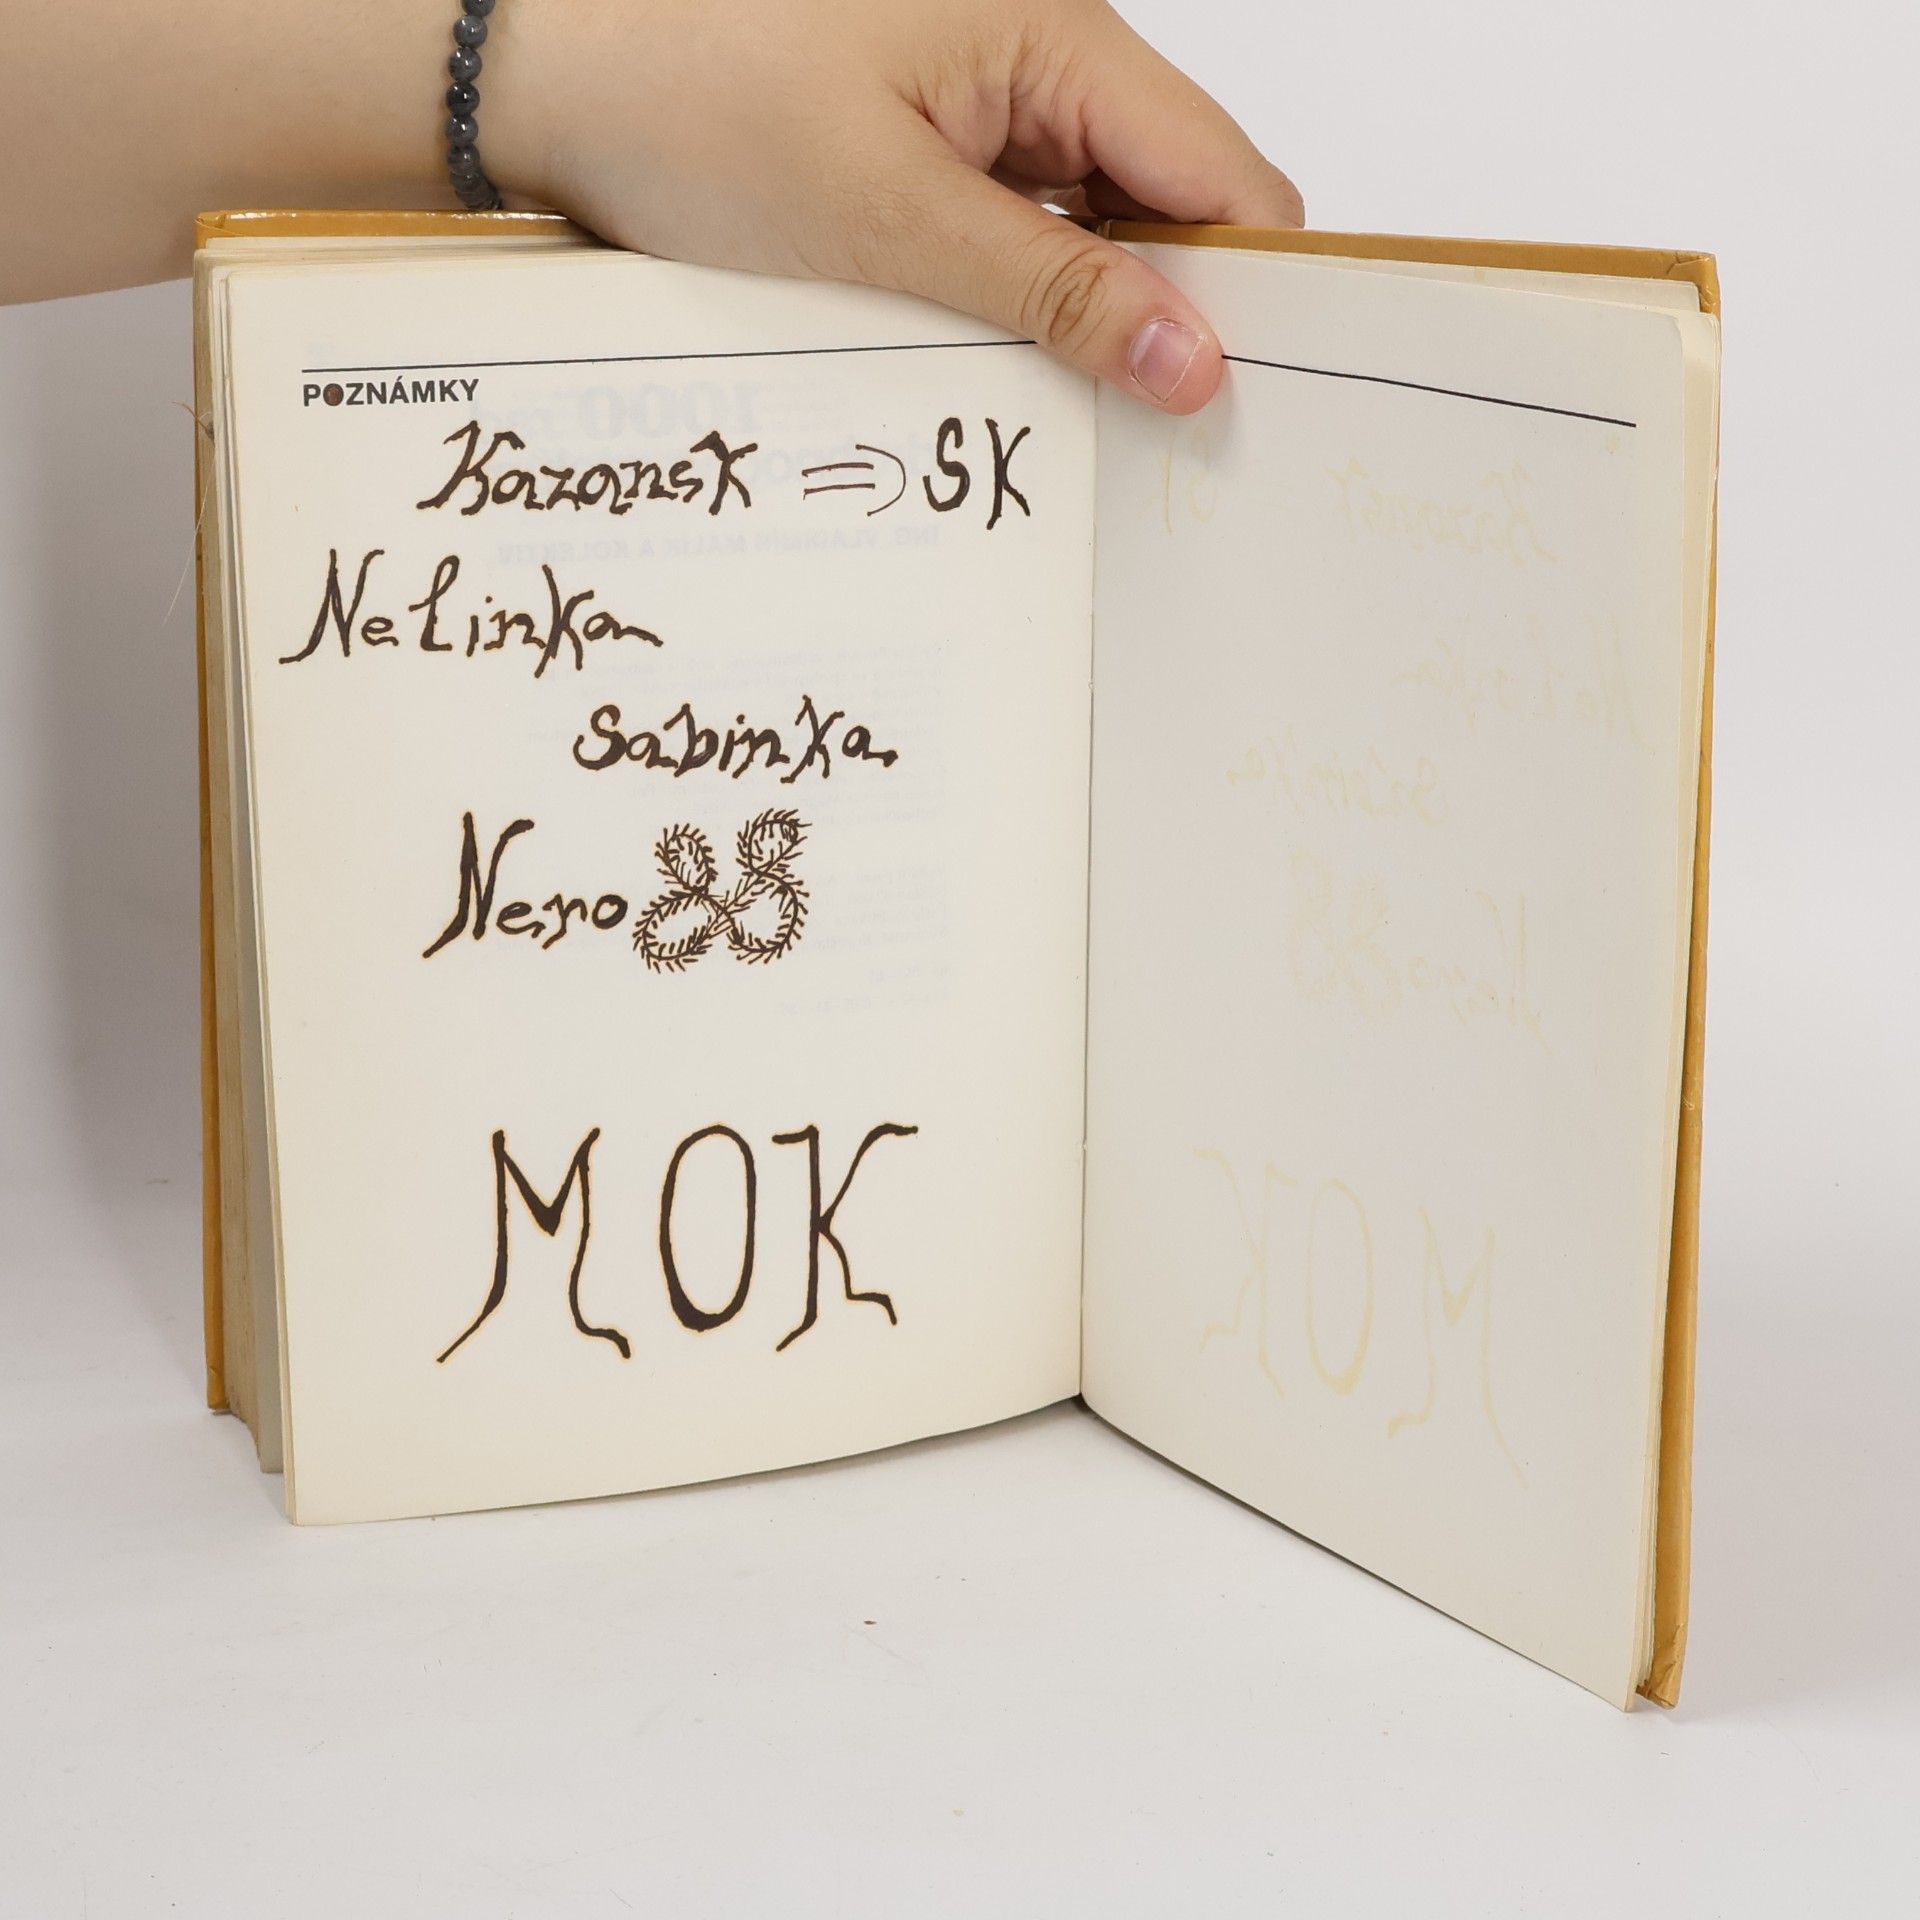 POZNÁMKY
Kazansk => SK
Nelinka
Sabinka
Nero
MOK